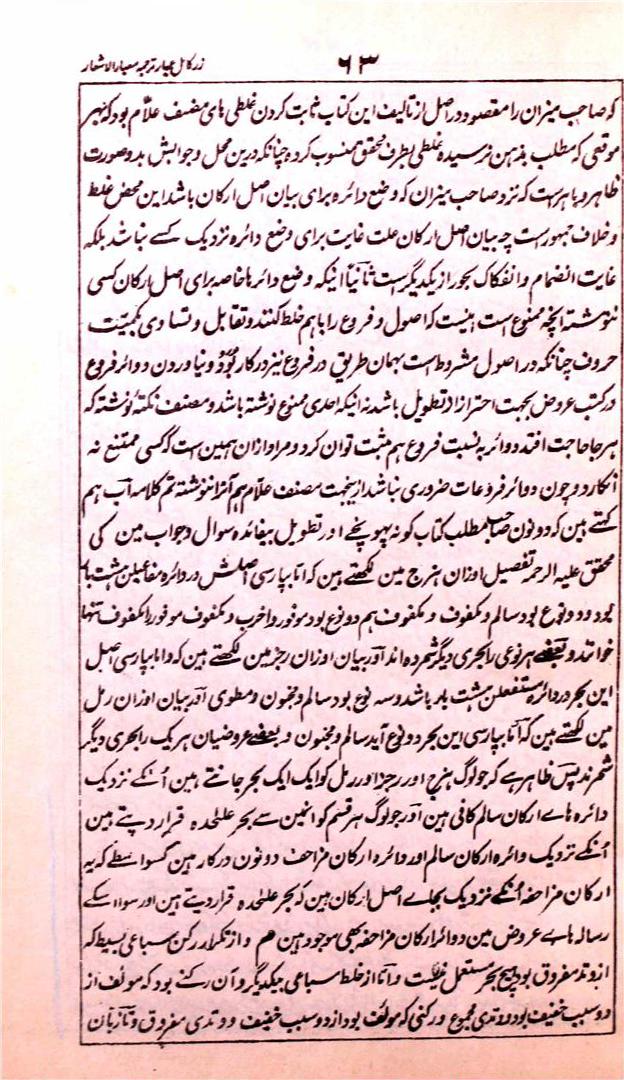 زر کامل عیار ترجمہ معیار الاشعار
۶۳
کہ صاحب میزان را مقصود در اصل از تالیف این کتاب ثابت کردن غلطی ہای مصنف علّام بود کہ بہر
موقعی کہ مطلب بذہن نرسیدہ غلطی بطرف محقق منسوب کردہ چنانکہ درین محل و جوابش بدو صورت
ظاہر و باہر ست کہ نزد صاحب میزان کہ وضع دائرہ برای بیان اصل ارکان باشد این محض غلط
و خلاف جمہور ست چہ بیان اصل ارکان علت غایت برای وضع دائرہ نزدیک کسے نباشد بلکہ
غایت انضمام و انفکاک بحور از یکدیگر ست ثانیاً اینکہ وضع دائرہا خاصہ برای اصل ارکان کسی
ننوشتہ انچہ ممنوع ست اینست کہ اصول و فروع را باہم خلط کنند و تقابل و تساوی کمیّت
حروف چنانکہ در اصول مشروط ست بہمان طریق در فروع نیز درکار بُوَد و نیاوردن دوائر فروع
در کتب عروض بجہت احتراز از تطویل باشد نہ اینکہ احدی ممنوع نوشتہ باشد و مصنف نکتہ نوشتہ کہ
ہر جا حاجت افتد دوائر بہ نسبت فروع ہم مثبت توان کرد و مراد از ان ہمین ست کہ کسی ممتنع نہ
انگارد و چون دوائر فروعات ضروری نباشد ازینجہت مصنف علّام ہم آنرا ننوشتہ تم کلامہ اب ہم
کہتے ہین کہ دونون صاحب مطلب کتاب کو نہ پہونچے اور تطویل بیفائدہ سوال و جواب مین کی
محقق علیہ الرحمہ تفصیل اوزان ہزج مین لکھتے ہین کہ اما بپارسی اصلش در دائرہ مفاعیلن ہشت بار
بود و دو نوع بود سالم و مکفوف و مکفوف ہم دو نوع بود موفور و اخرب و مکفوف موفور را مکفوف تنہا
خوانند و بعضے ہر نوعی را بحری دیگر شمردہ اند اور بیان اوزان رجز مین لکھتے ہین کہ و اما بپارسی اصل
این بحر در دائرہ مستفعلن ہشت بار باشد و سہ نوع بود سالم و مخبون و مطوی اور بیان اوزان رمل
مین لکھتے ہین کہ اما بپارسی این بحر دو نوع آید سالم و مخبون و بعضے عروضیان ہر یک را بحری دیگر
شمرند پس ظاہر ہے کہ جو لوگ ہزج اور رجز اور رمل کو ایک ایک بحر جانتے ہین اُنکے نزدیک
دائرہ ہاے ارکان سالم کافی ہین اور جو لوگ ہر قسم کو انین سے بحر علٰحدہ قرار دیتے ہین
اُنکے نزدیک دائرہ ارکان سالم اور دائرہ ارکان مزاحف دونون درکار ہین کسواسطے کہ یہ
ارکان مزاحفہ اُنکے نزدیک بجاے اصل ارکان ہین کہ بحر علٰحدہ قرار دیتے ہین اور سوا اسکے
رسالہ ہاے عروض مین دوائر ارکان مزاحفہ بھی موجود ہین ھم و از تکرار رکن سباعی بسیط کہ
از وتد مفروق بود ہیچ بحر مستعمل نیست و اما از خلط سباعی بیکدیگر و آن رکنے بود کہ مولف از
دو سبب خفیف بود و وتدی مجموع و رکنی کہ مولف بود از دو سبب خفیف و وتدی مفروق و تازیان